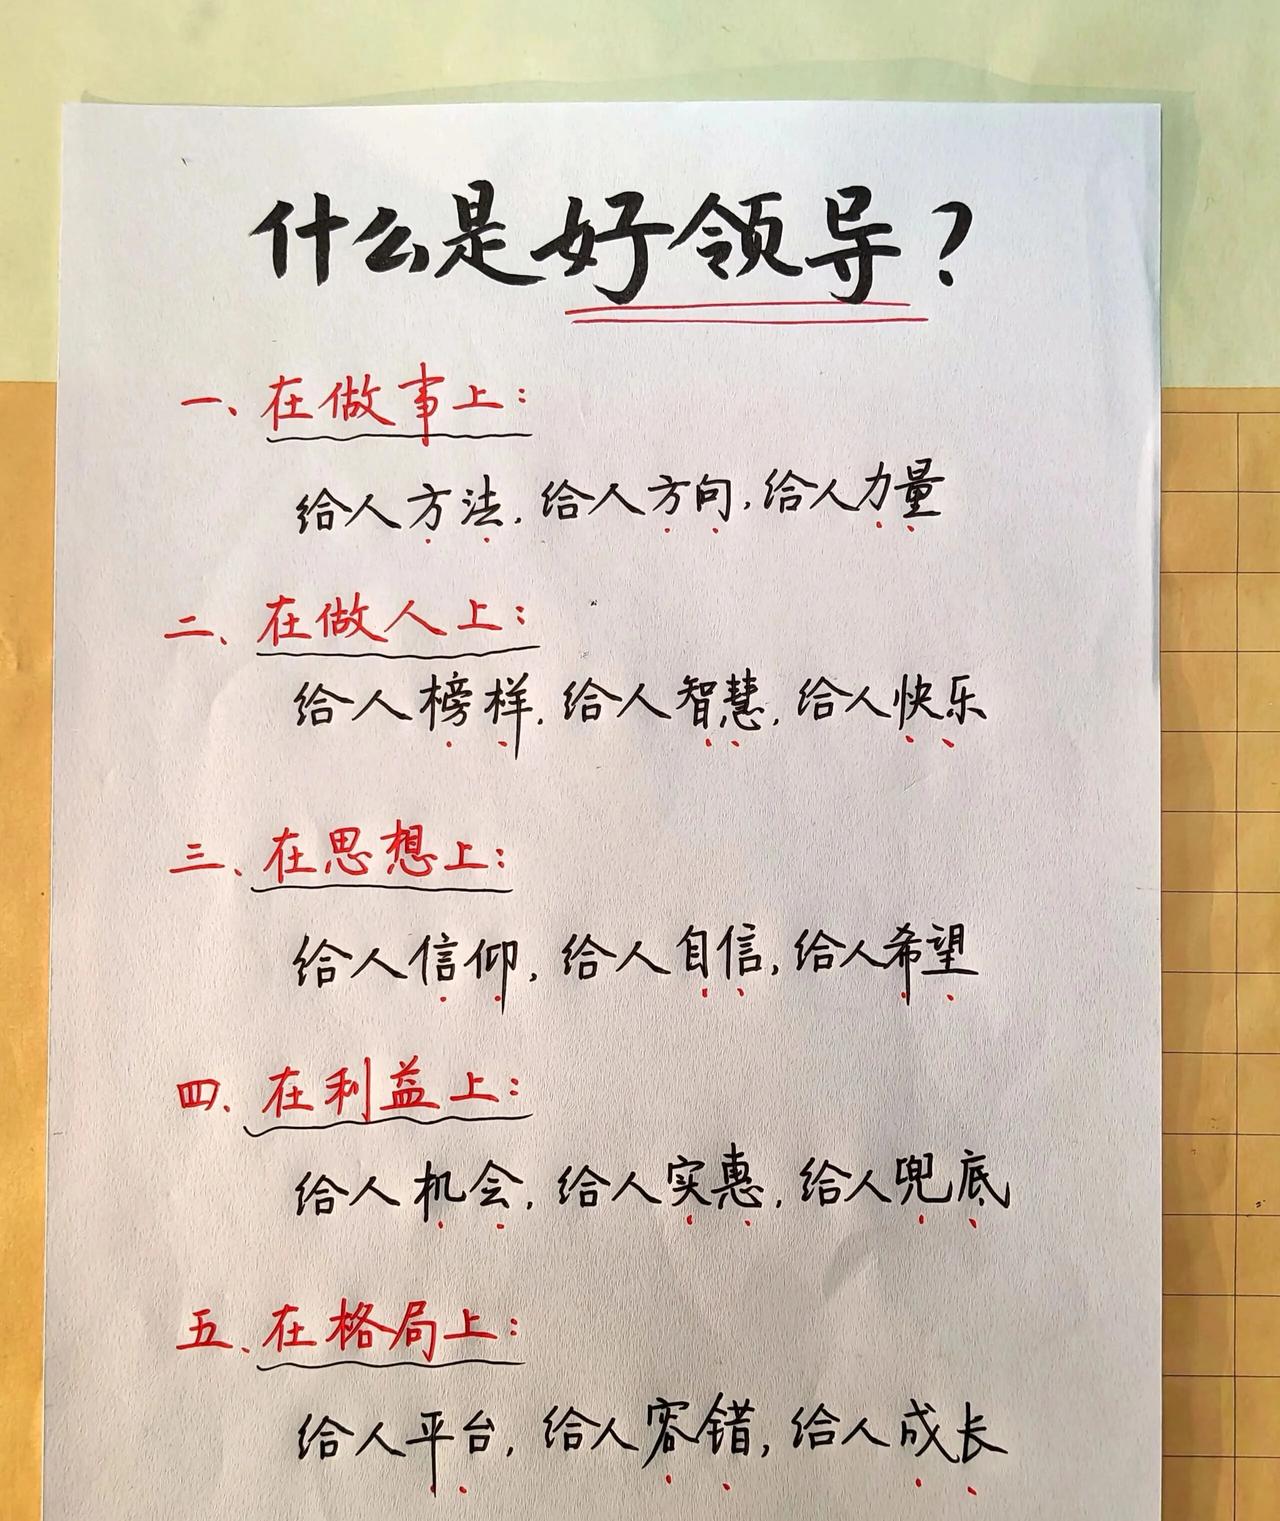 什么是好领导?
一、在做事上:
给人方法,给人方向,给人力量
二、在做人上:
给人榜样,给人智慧,给人快乐
三、在思想上:
给人信仰,给人自信,给人希望
四、在利益上:
给人机会,给人实惠,给人兜底
五、在格局上:
给人平台,给人容错,给人成长